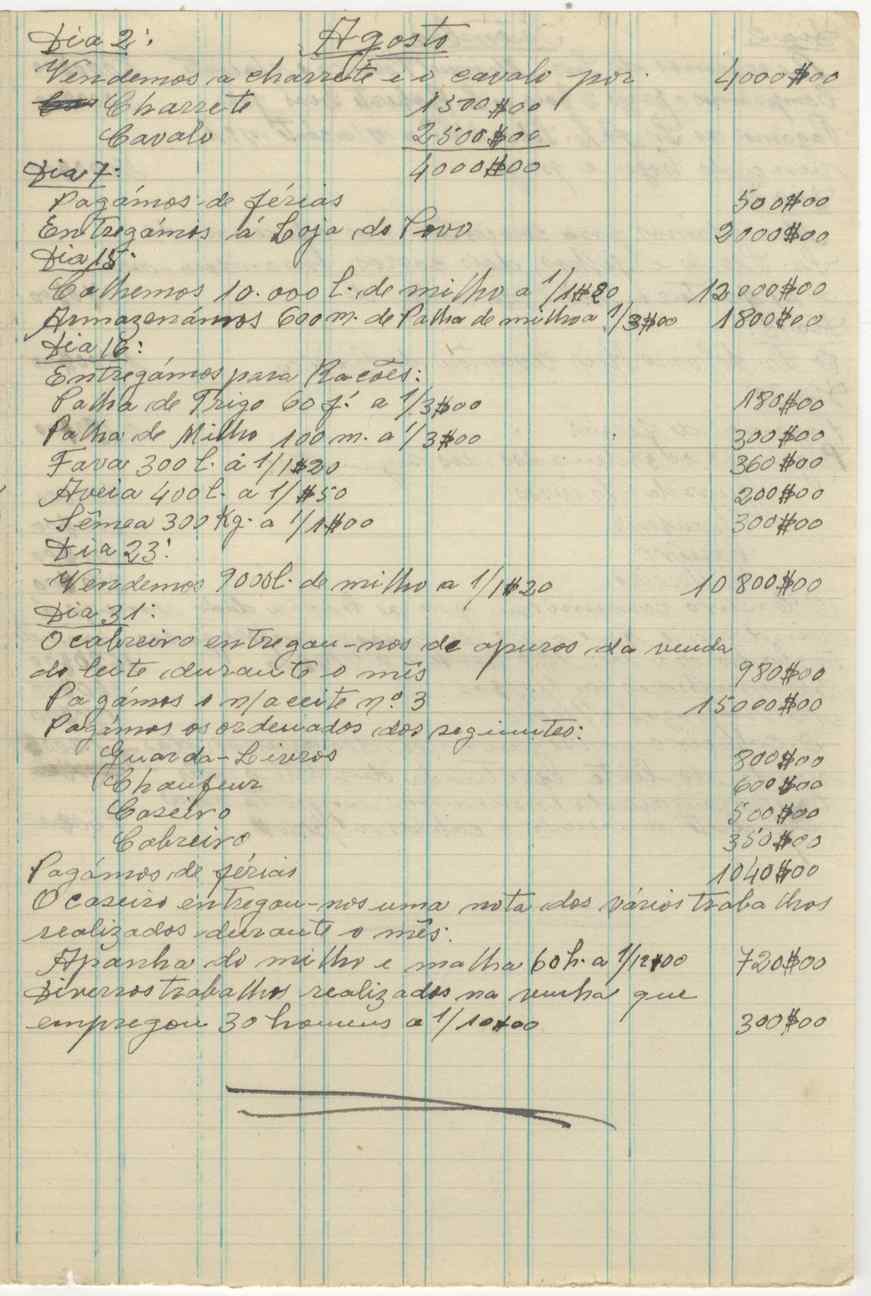 Dia 2: Agosto
Vendemos a charrete e o cavalo por. 4000$00
Charrete 1500$00
Cavalo 2500$00
4000$00
Dia 7:
Pagámos de férias 500$00
Entregámos á Loja do Povo 2000$00
Dia 15:
Colhemos 10.000 l. de milho a 1/1$20 12000$00
Armazenámos 600 m. de Palha de milho a 1/3$00 1800$00
Dia 16:
Entregámos para Racões:
Palha de Trigo 60 f. a 1/3$00 180$00
Palha de Milho 100 m. a 1/3$00 300$00
Fava 300 l. á 1/1$20 360$00
Aveia 400 l. a 1/$50 200$00
Sêmea 300 Kg. a 1/1$00 300$00
Dia 23:
Vendemos 9000 l. de milho a 1/1$20 10800$00
Dia 31:
O cabreiro entregou-nos de apuros da venda
do leite durante o mês 980$00
Pagámos o n/aceite nº 3 15000$00
Pagámos os ordenados dos seguintes:
Guarda-Livros 800$00
Chaufeur 600$00
Caseiro 500$00
Cabreiro 350$00
Pagámos de férias 1040$00
O caseiro entregou-nos uma nota dos vários trabalhos
realizados durante o mês:
Apanha do milho e malha 60 h. a 1/12$00 720$00
Diversos trabalhos realizados na vinha que
empregou 30 homens a 1/10$00 300$00